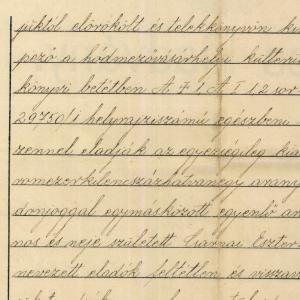 júktól elörökölt és telekkönyvön ki
pező a hódmezővásárhelyi külteri
könyvi betétben A f 1 A I 1.2 sor
29750/1 helyrajziszámú egészbeni
zennel eladják az egyezségileg kia
romezerkilencszázhatvanegy arany
donjoggal egymásközött egyenlő a
nos és neje született Csarnai Eszter
nevezett eladók feltétlen és vissza